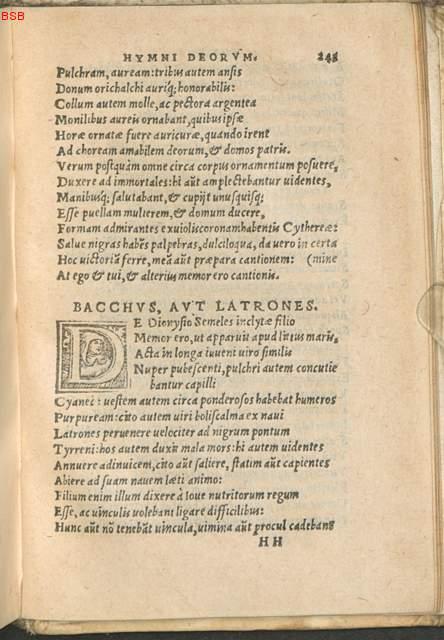 BSB
HYMNI DEORVM. 248
Pulchram, auream: tribus autem ansis
Donum orichalchi auriq; honorabilis:
Collum autem molle, ac pectora argentea
Monilibus aureis ornabant, quibus ipsæ
Horæ ornatæ fuere auricuræ, quando irent
Ad choream amabilem deorum, & domos patris.
Verum postquàm omne circa corpus ornamentum posuere,
Duxere ad immortales: hi aūt amplectebantur uidentes,
Manibusq; salutabant, & cupijt unusquisq;
Esse puellam mulierem, & domum ducere,
Formam admirantes ex uiolis coronam habentis Cythereæ:
Salue nigras habēs palpebras, dulciloqua, da uero in certa
Hoc uictoriā ferre, meā aūt præpara cantionem: (mine
At ego & tui, & alterius memor ero cantionis.
BACCHVS, AVT LATRONES.
DE Dionysio Semeles inclytæ filio
Memor ero, ut apparuit apud littus maris,
Acta in longa iuueni uiro similis
Nuper pubescenti, pulchri autem concutie
bantur capilli
Cyanei: uestem autem circa ponderosos habebat humeros
Purpuream: cito autem uiri boliscalma ex naui
Latrones peruenere uelociter ad nigrum pontum
Tyrreni: hos autem duxit mala mors: hi autem uidentes
Annuere adinuicem, cito aūt saliere, statim aūt capientes
Abiere ad suam nauem læti animo:
Filium enim illum dixere à Ioue nutritorum regum
Esse, ac uinculis uolebant ligare difficilibus:
Hunc aūt nō tenebāt uincula, uimina aūt procul cadebant
HH